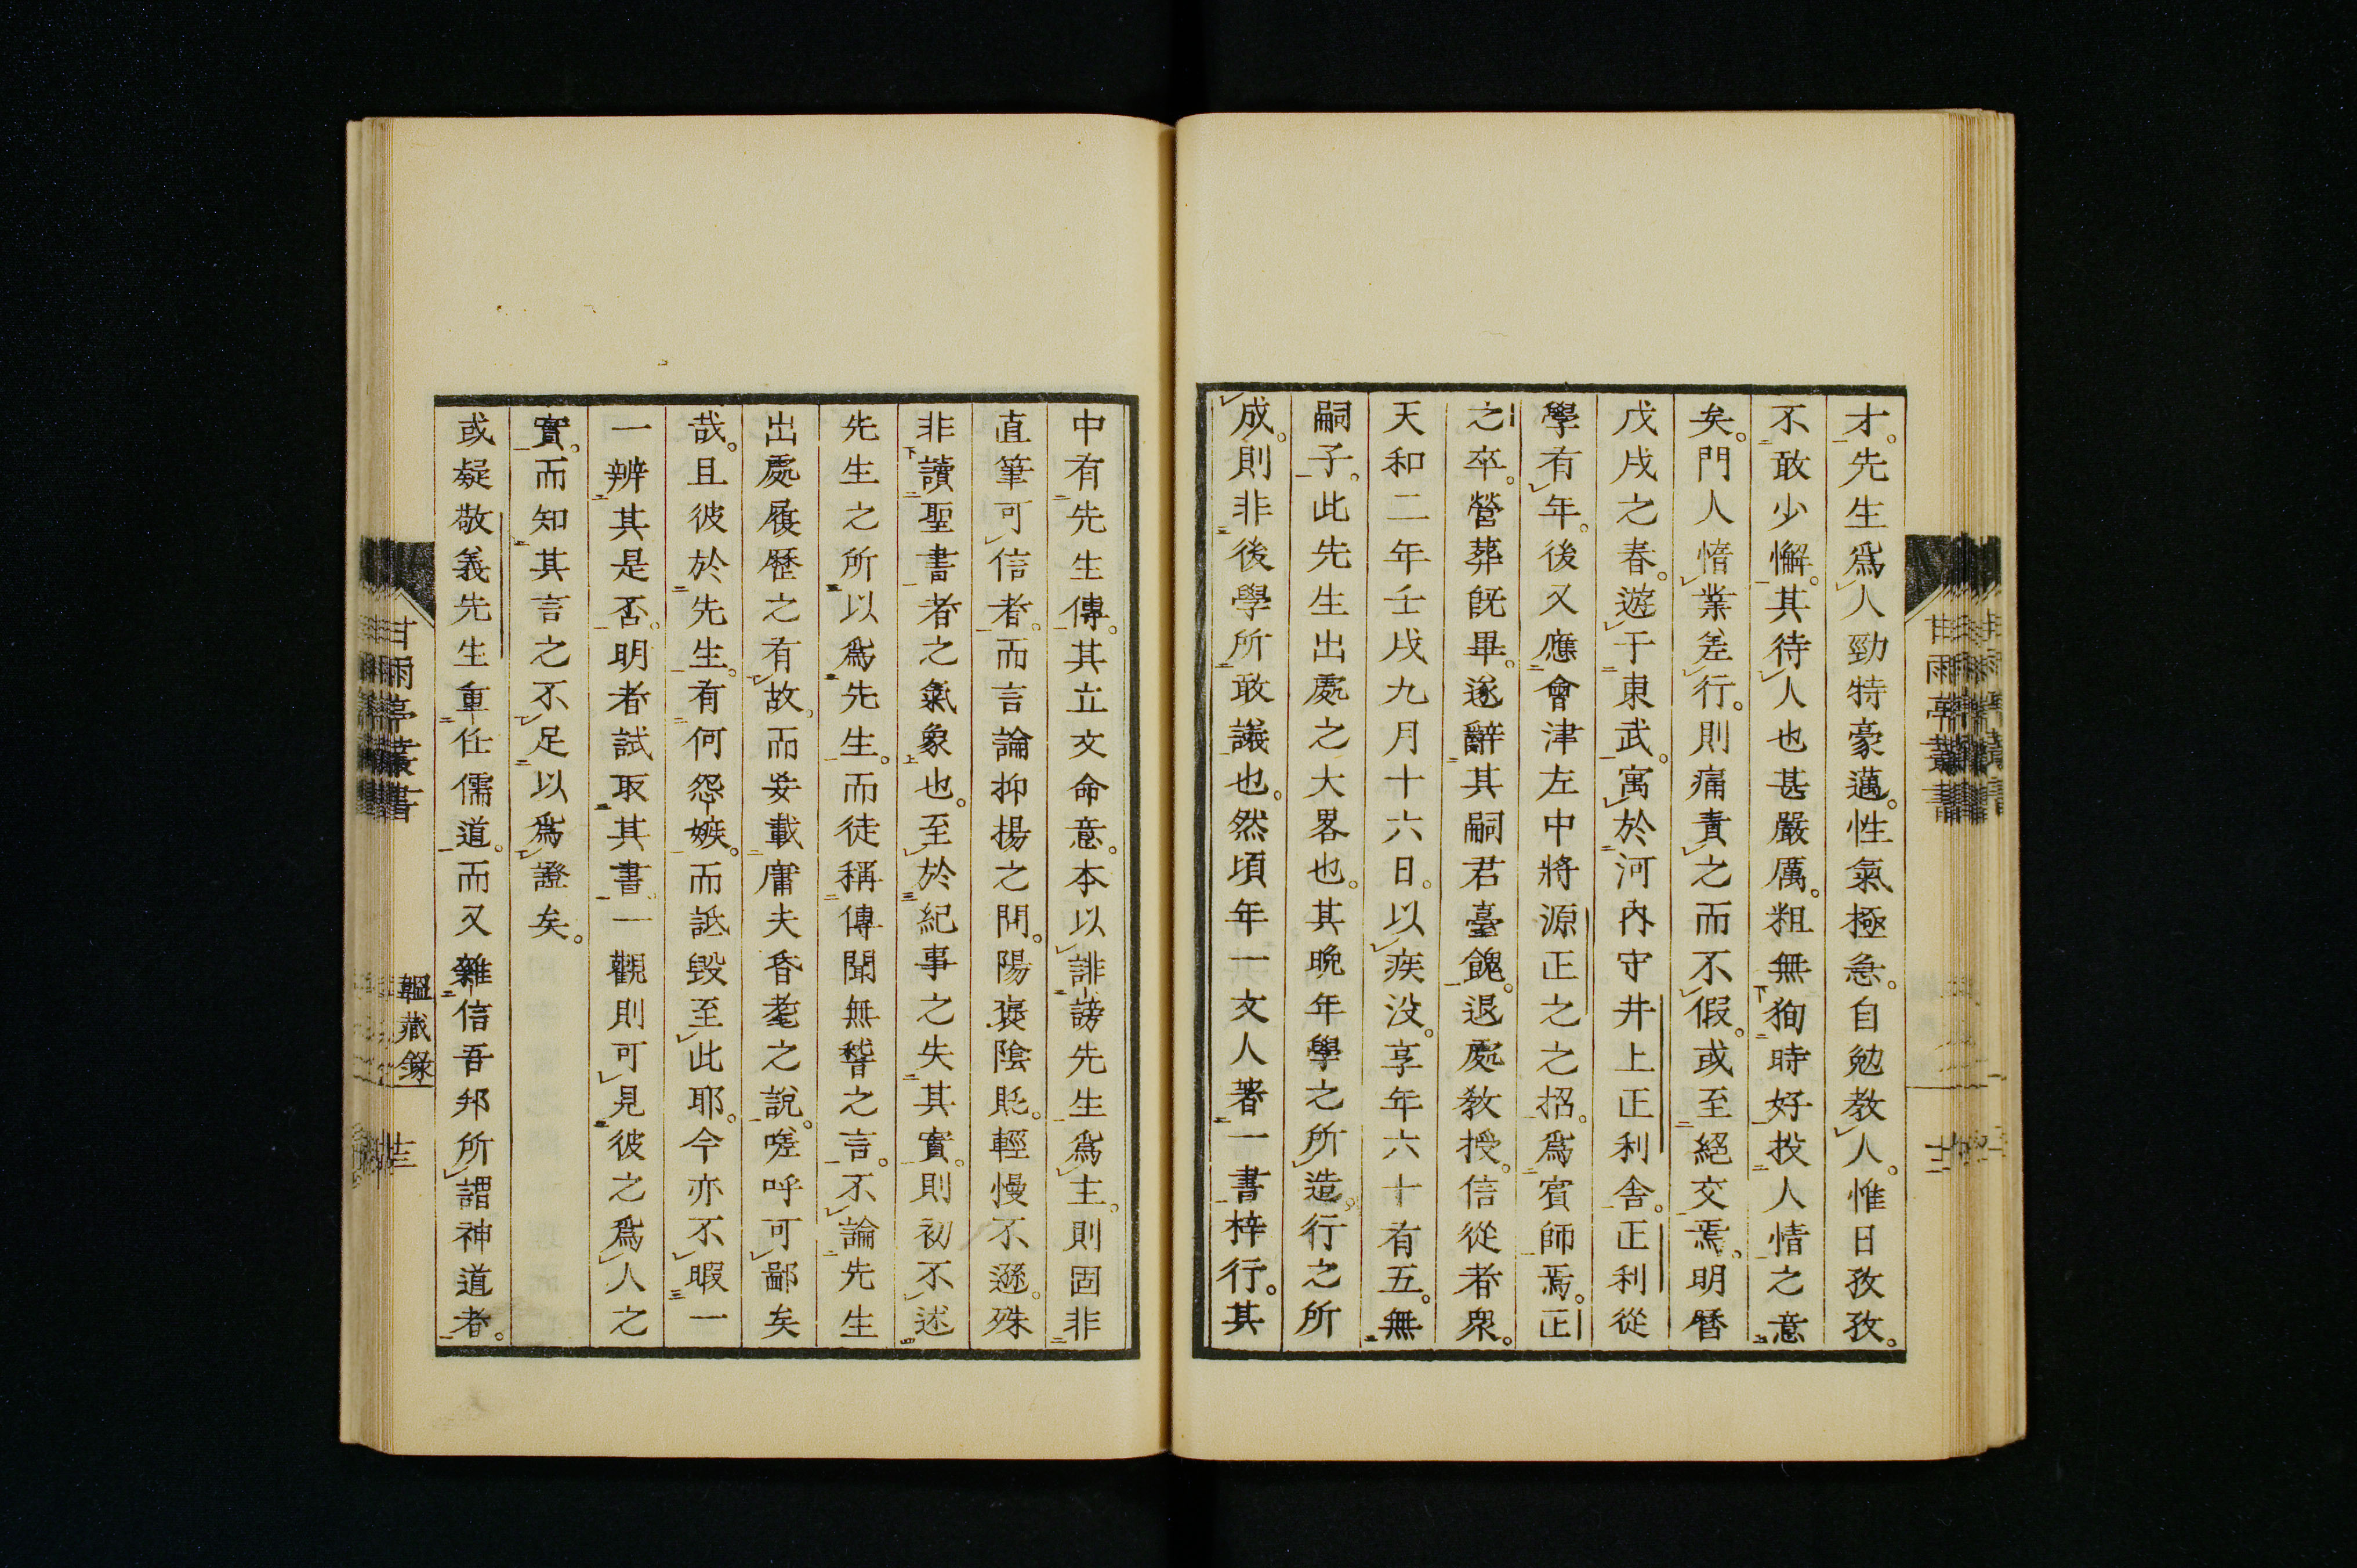 才。先生爲人勁特豪邁。性氣極急。自勉教人。惟日孜孜。
不敢少懈。其待人也甚嚴厲。粗無狥時好投人情之意
矣。門人惰業差行。則痛責之而不假。或至絕交焉。明曆
戊戌之春。遊于東武。寓於河內守井上正利舍。正利從
學有年。後又應會津左中將源正之之招。爲賓師焉。正
之卒。營葬旣畢。遂辭其嗣君臺餽。退處教授。信從者衆。
天和二年壬戌九月十六日。以疾没。享年六十有五。無
嗣子。此先生出處之大畧也。其晚年學之所造。行之所
成。則非後學所敢議也。然頃年一文人著一書梓行。其
中有先生傳。其立文命意。本以誹謗先生爲主。則固非
直筆可信者。而言論抑揚之間。陽褒陰貶。輕慢不遜。殊
非讀聖書者之氣象也。至於紀事之失其實。則初不述
先生之所以爲先生。而徒稱傳聞無稽之言。不論先生
出處履歷之有故。而妄載庸夫昏耄之說。嗟呼可鄙矣
哉。且彼於先生。有何怨嫉。而詆毀至此耶。今亦不暇一
一辨其是否。明者試取其書一觀則可見彼之爲人之
實。而知其言之不足以爲證矣。
或疑敬義先生重任儒道。而又雜信吾邦所謂神道者。
甘雨亭叢書
韞藏錄